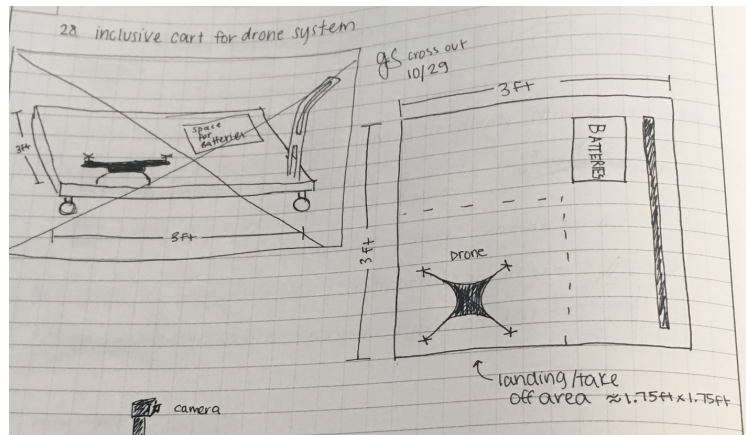 28 inclusive cart for drone system
gs cross out
10/29
3ft
space
for
Batteries
3ft
3ft
3ft
BATTERIES
Drone
landing/take
off area ≈1.75ft x 1.75ft
camera